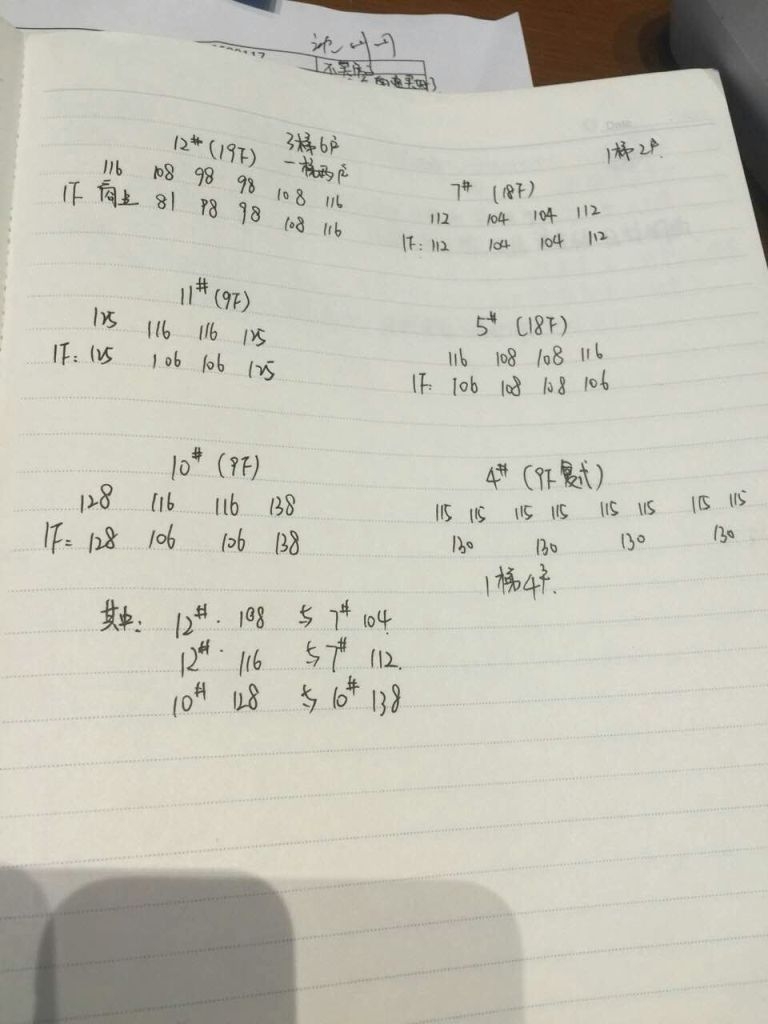 12# (19F) 3梯6户
一梯两户
116 108 98 98 108 116
1F 商上 81 98 98 108 116
1梯2户
7# (18F)
112 104 104 112
1F: 112 104 104 112
11# (9F)
125 116 116 125
1F: 125 106 106 125
5# (18F)
116 108 108 116
1F: 106 108 108 106
10# (9F)
128 116 116 138
1F= 128 106 106 138
4# (9F 复式)
115 115 115 115 115 115 115 115
130 130 130 130
1梯4户.
其中: 12#. 108 与 7# 104
12#. 116 与 7# 112.
10# 128 与 10# 138